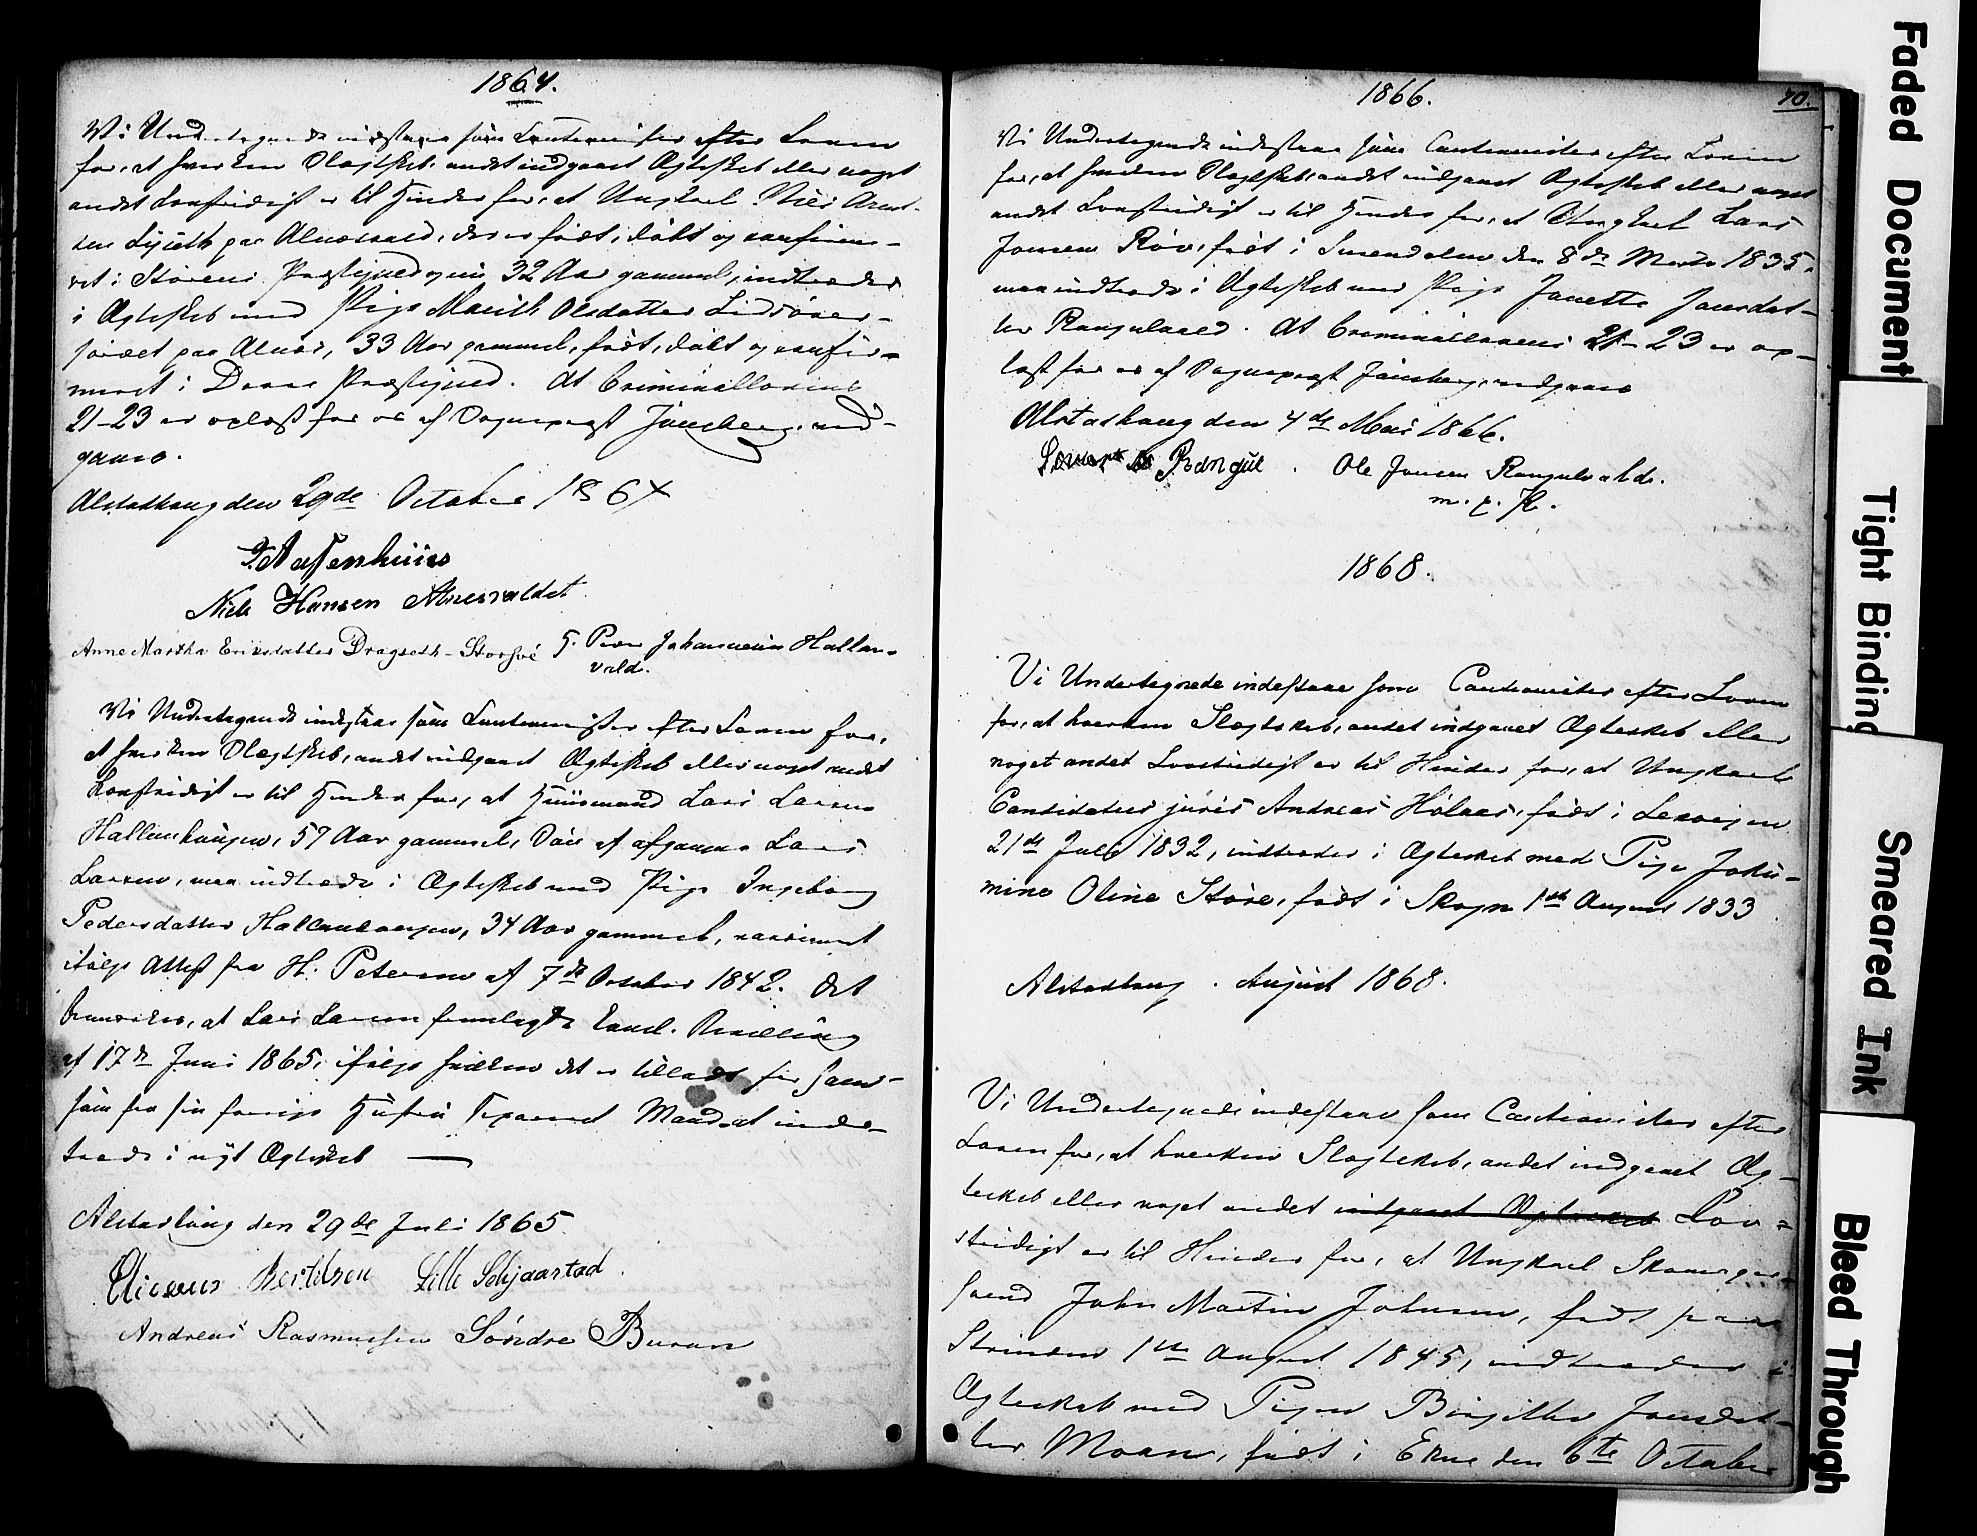 1864.
Vi Undertegnede indestaae som Cautionister efter Loven
for, at hverken Slægtskab, andet indgaaet Ægteskab eller noget
andet Lovstridigt er til Hinder for, at Ungkarl Nils Arnt-
sen på Alnesvald, der er født, døbt og confirme-
ret i Størens Præstegjeld og nu 32 Aar gammel, indtræder
i Ægteskab med Pige Marith Olsdatter
paa Alnæs, 33 Aar gammel, født, døbt og confir-
meret i Præstegjeld. At Criminallovens
21-23 er oplæst for os af Sognepræst Jensberg, ved-
gaaes.
Alstadhaug den 29de October 1864
Niels Hansen Alnesvaldet
Anne Martha Eriksdatter Dragseth-Storhoé Peder Johannesen Hallan-
vald.
Vi Undertegnede indestaae som Cautionister efter Loven for,
at hverken Slægtskab, andet indgaaet Ægteskab eller noget andet
Lovstridigt er til Hinder for, at Huusmand Lars Larsen
Hallanhaugen, 57 Aar gammel, Søn af afgangne Lars
Larsen, maa indtræde i Ægteskab med Pige Ingeborg
Pedersdatter Hallanhaugen, 34 Aar gammel, vaccineret
ifølge Attest fra H. Petersen af 7de October 1842. Det
bemærkes, at Lars Larsen fremlagde Bevilling
af 17de Juni 1865, ifølge hvilken det er tilladt for ham
som fra sin forrige Hustru separeret Mand at ind-
træde i nyt Ægteskab —
Alstadhaug den 29de Juli 1865.
Bertilsen Lille Schjaarstad.
Andreas Rasmussen Søndre Buran
1866. 70.
Vi Undertegnede indestaae som Cautionister efter Loven
for, at hverken Slægtskab, andet indgaaet Ægteskab eller noget
andet Lovstridigt er til Hinder for, at Ungkarl Lars
Jonsen født i den 8de Marts 1835,
maa indtræde i Ægteskab med Pige Janette Jonsdat-
ter Rangulvald. At Criminallovens 21-23 er op-
læst for os af Sognepræst Jensberg, vedgaaes
Alstadhaug den 4de Mai 1866.
Rangul. Ole Jonsen Rangulvald.
m. p. P.
1868.
Vi Undertegnede indestaae som Cautionister efter Loven
for, at hverken Slægtskab, andet indgaaet Ægteskab eller
noget andet Lovstridigt er til Hinder for, at Ungkarl
Candidatus juris Andreas Holaas, født i Lexvigen
21de Juli 1832, indtræder i Ægteskab med Pige Joha-
mine Oline Støre, født i Skogn 1ste August 1833
Alstadhaug . August 1868.
Vi Undertegnede indestaae som Cautionister efter
Loven for, at hverken Slægtskab, andet indgaaet Æg-
teskab eller noget andet indgaaet Ægteskab Lov-
stridigt er til Hinder for, at Ungkarl Skomager-
svend John Martin Johnsen, født paa
Strinden 1ste August 1845, indtræder i
Ægteskab med Pigen Birgitte Jonsdat-
ter Moan, født i Ekne den 6te October
Faded Document
Tight Binding
Smeared Ink
Bleed Through